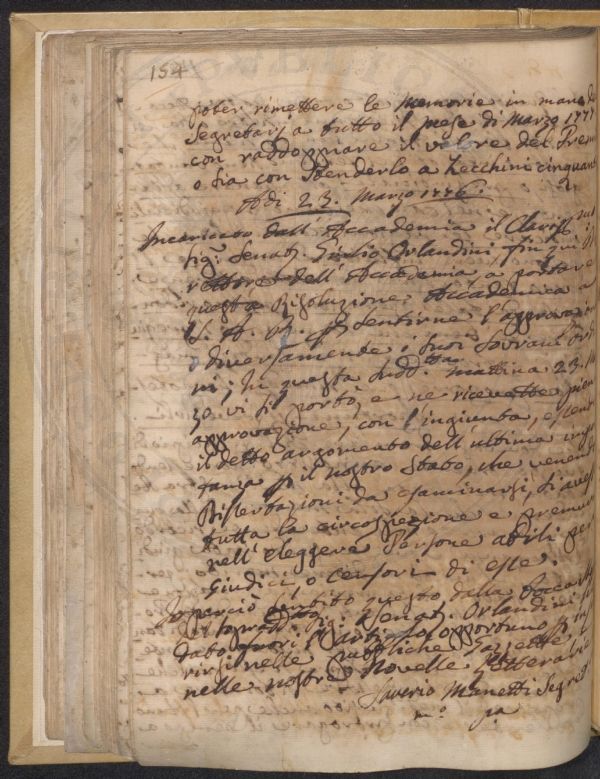 154
poter rimettere le Memorie in mano de
Segretarj a tutto il mese di Marzo 1777
con raddoppiare il valore del Prem
o sia con estenderlo a Zecchini cinquan
Adi 23. Marzo 1776.
Incaricato dall' Accademia il Clariss.mo
Sig.r Senat.r Giulio Orlandini, fin qui Di
rettore dell' Accademia, a portare
questa Risoluzione Accademica a
S. A. R. p sentirne l'approvazio
o diversamente i suoi Sovrani Ord
ni; In questa sudd.ta mattina 23. M
zo vi si portò, e ne ricevette pien
approvazione, con l'ingiunta, essend
il detto argomento dell' ultima impo
tanza p il nostro Stato, che venend
Dissertazioni da esaminarsi, si avess
tutta la circospezione e premura
nell' eleggere Persone abili per
Giudici, o censori di esse.
Io perciò sentito questo dalla bocca
del sopradd.o Sig.r Senat.r Orlandini
dato fuori l'Artigolo opportuno p in
rirsi nelle pubbliche Gazzette
nelle nostre Novelle Letterarie
Saverio Manetti Segret
m.o pa